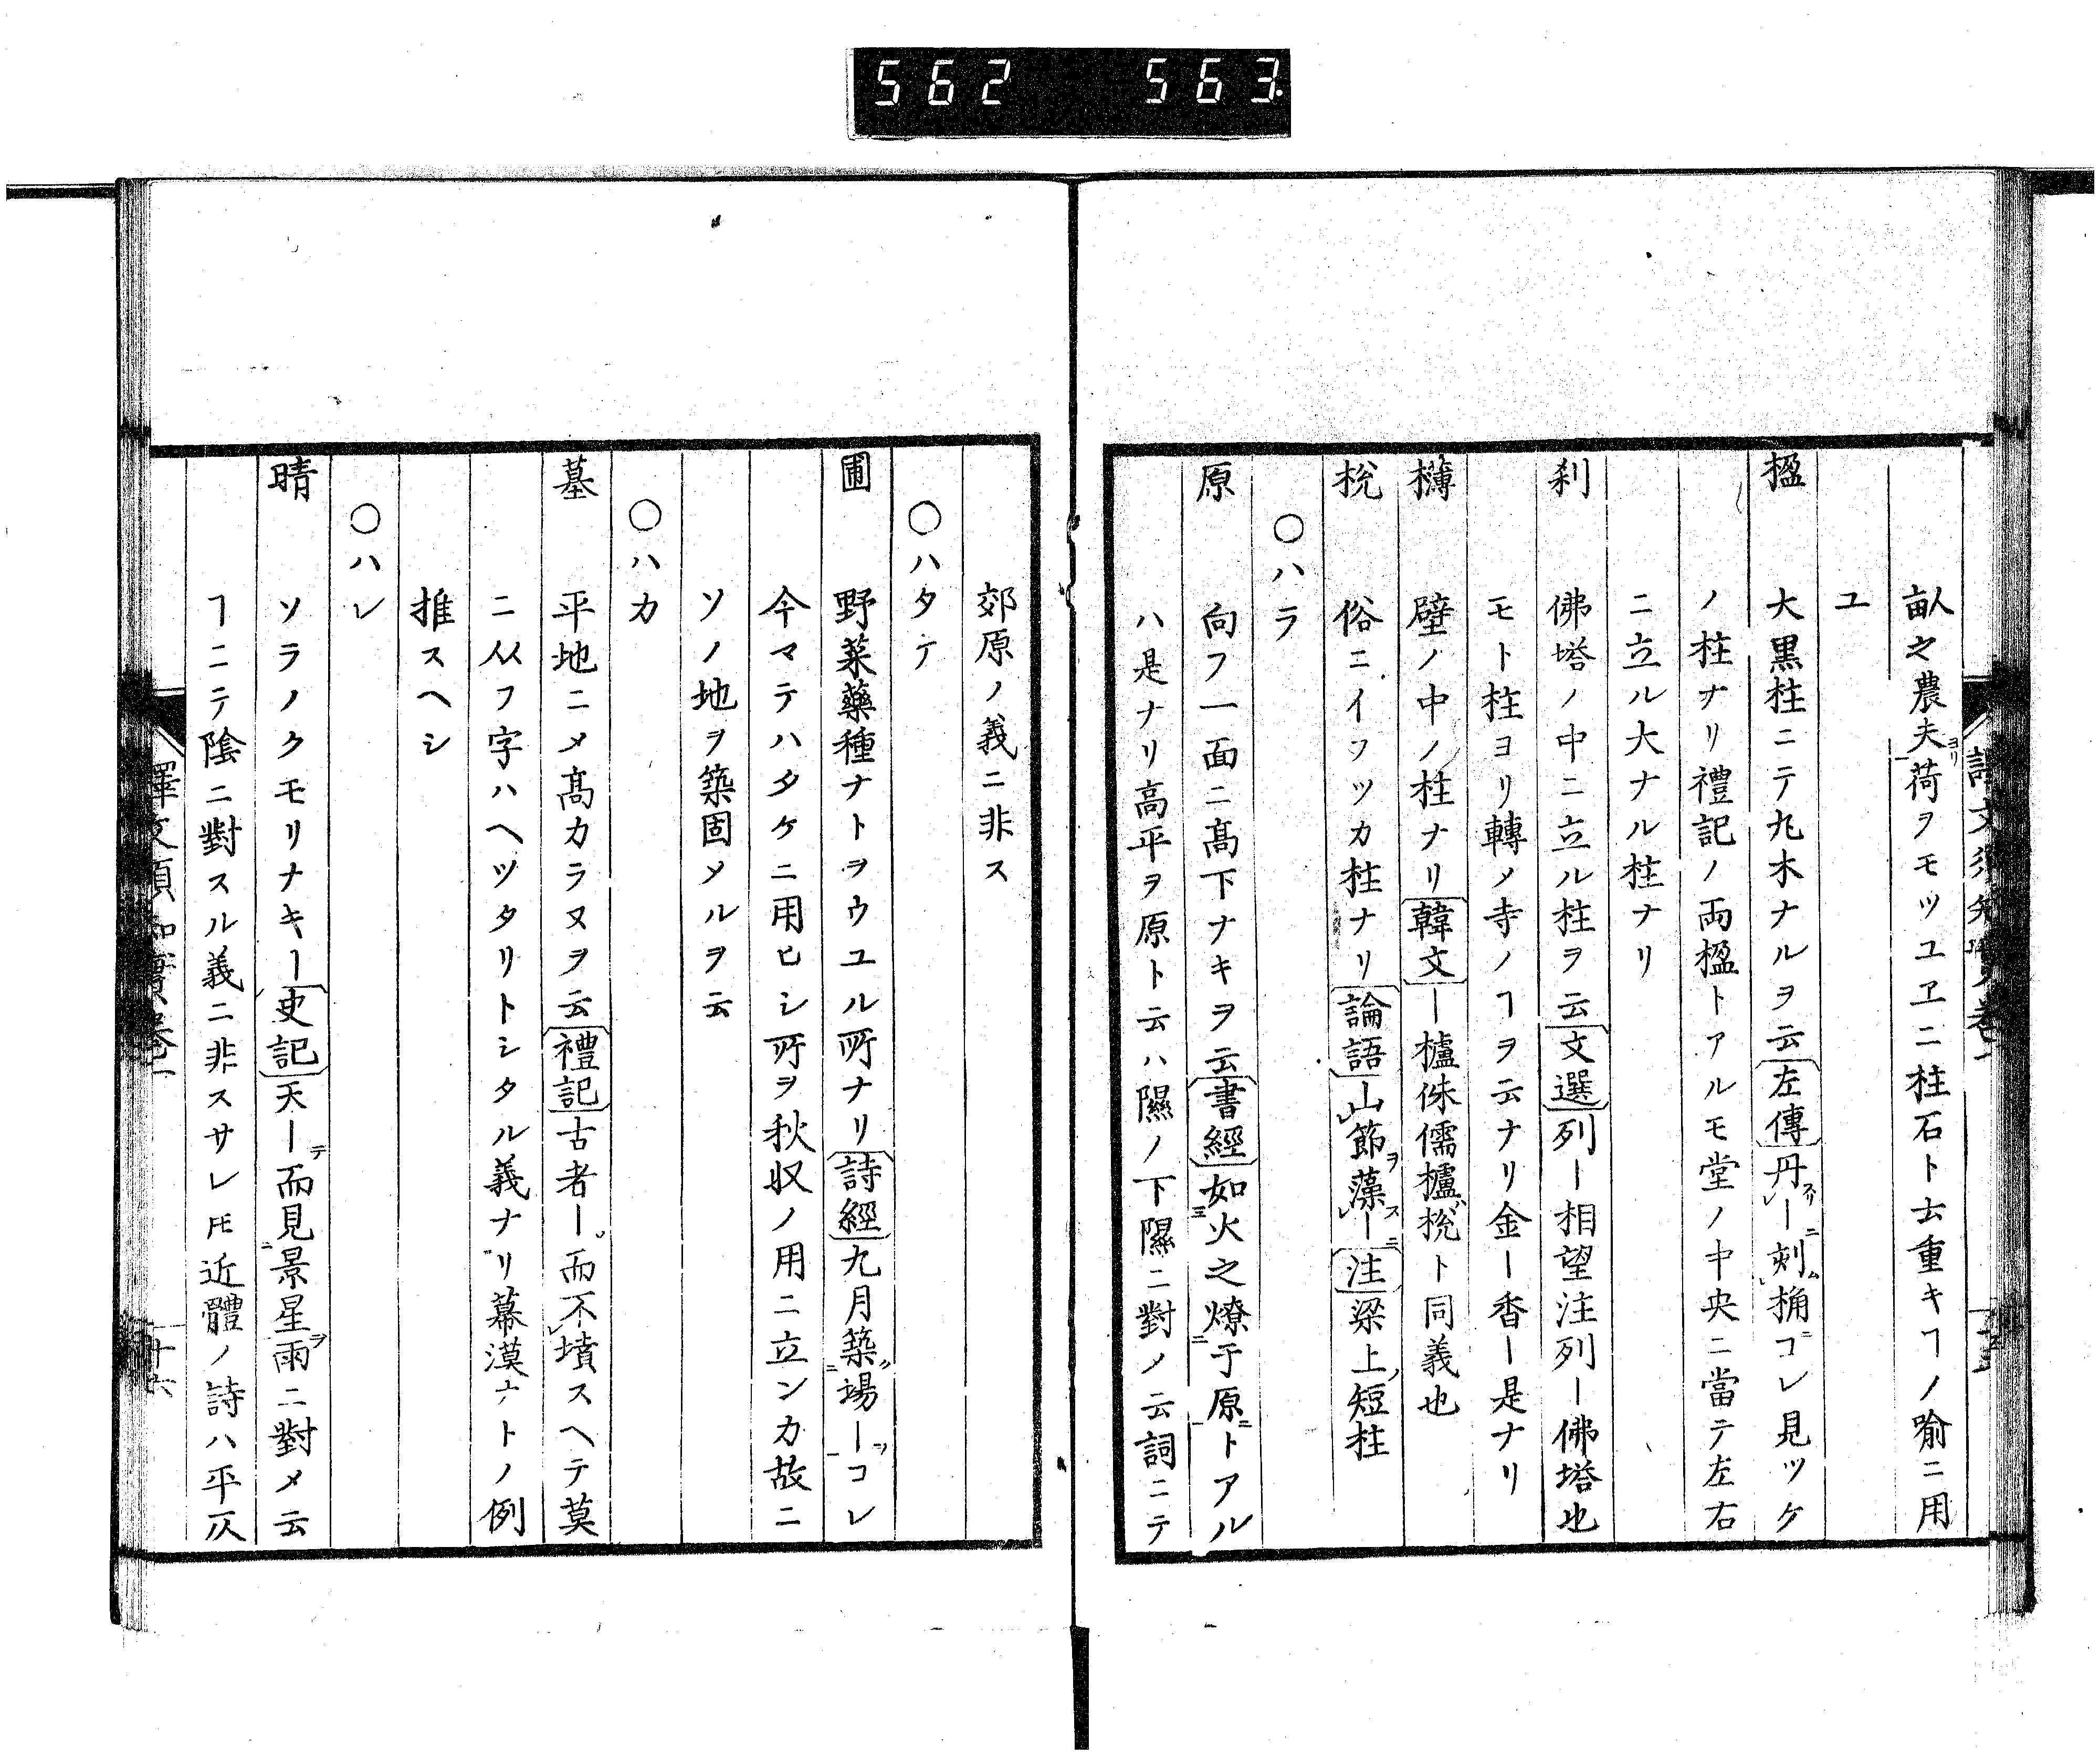 562 563
畝之農夫ヨリ荷ヲモツユヱニ柱石ト云重キヿノ喻ニ用
ユ
楹 大黒柱ニテ九木ナルヲ云左傳丹ー刻桷コレ見ツケ
ノ柱ナリ禮記ノ両楹トアルモ堂ノ中央ニ當テ左右
ニ立ル大ナル柱ナリ
刹 佛塔ノ中ニ立ル柱ヲ云文選列ー相望注列ー佛塔也
モト柱ヨリ轉メ寺ノヿヲ云ナリ金ー香ー是ナリ
欂 壁ノ中ノ柱ナリ韓文ー櫨侏儒櫨梲ト同義也
梲 俗ニイフツカ柱ナリ論語山節ヲ藻ースニ注梁上ノ短柱
〇ハラ
原 向フ一面ニ髙下ナキヲ云書經如火之燎于原トアル
ハ是ナリ高平ヲ原ト云ハ隰ノ下隰ニ對メノ云詞ニテ
郊原ノ義ニ非ス
〇ハタケ
圃 野菜藥種ナトヲウユル所ナリ詩經九月築場ーコレ
今マテハタケニ用ヒシ所ヲ秋収ノ用ニ立ンカ故ニ
ソノ地ヲ築固メルヲ云
〇ハカ
墓 平地ニメ髙カラヌヲ云禮記古者ー而不墳スヘテ莫
ニ从フ字ハヘツタリトシタル義ナリ幕漠ナトノ例
推スヘシ
〇ハレ
晴 ソラノクモリナキー史記天ーテ而見景星雨ニ對メ云
ヿニテ陰ニ對スル義ニ非スサレㇳモ近體ノ詩ハ平仄
十六